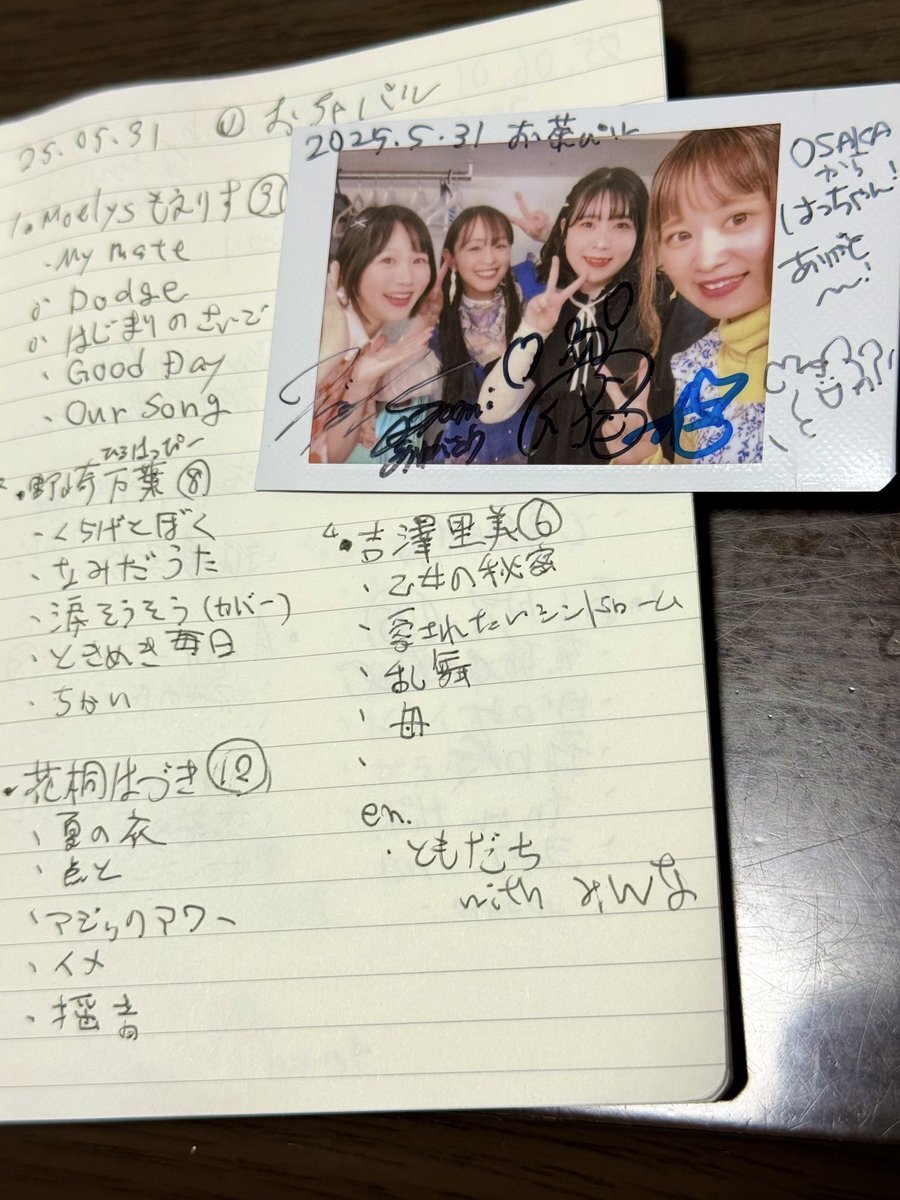 25.05.31 ① おちゃバル
1. Moelys もえりす ③
・My mate
・Dodge
・はじまりのさいで
・Good Day
・Our Song
ひろはっぴー
・野崎万葉 ⑧
・くらげとぼく
・なみだうた
・涙そうそう(カバー)
・ときめき毎日
・ちかい
・花桐はづき ⑫
・夏の衣
・点と
・マジックアワー
・イメ
・揺音
4. 吉澤里美 ⑥
・乙女の秘密
・愛されたいシンドローム
・乱舞
・母
・
en.
・ともだち
with みんな
2025.5.31 お茶バル
OSAKA
から
はっちゃん!
ありがと
〜!